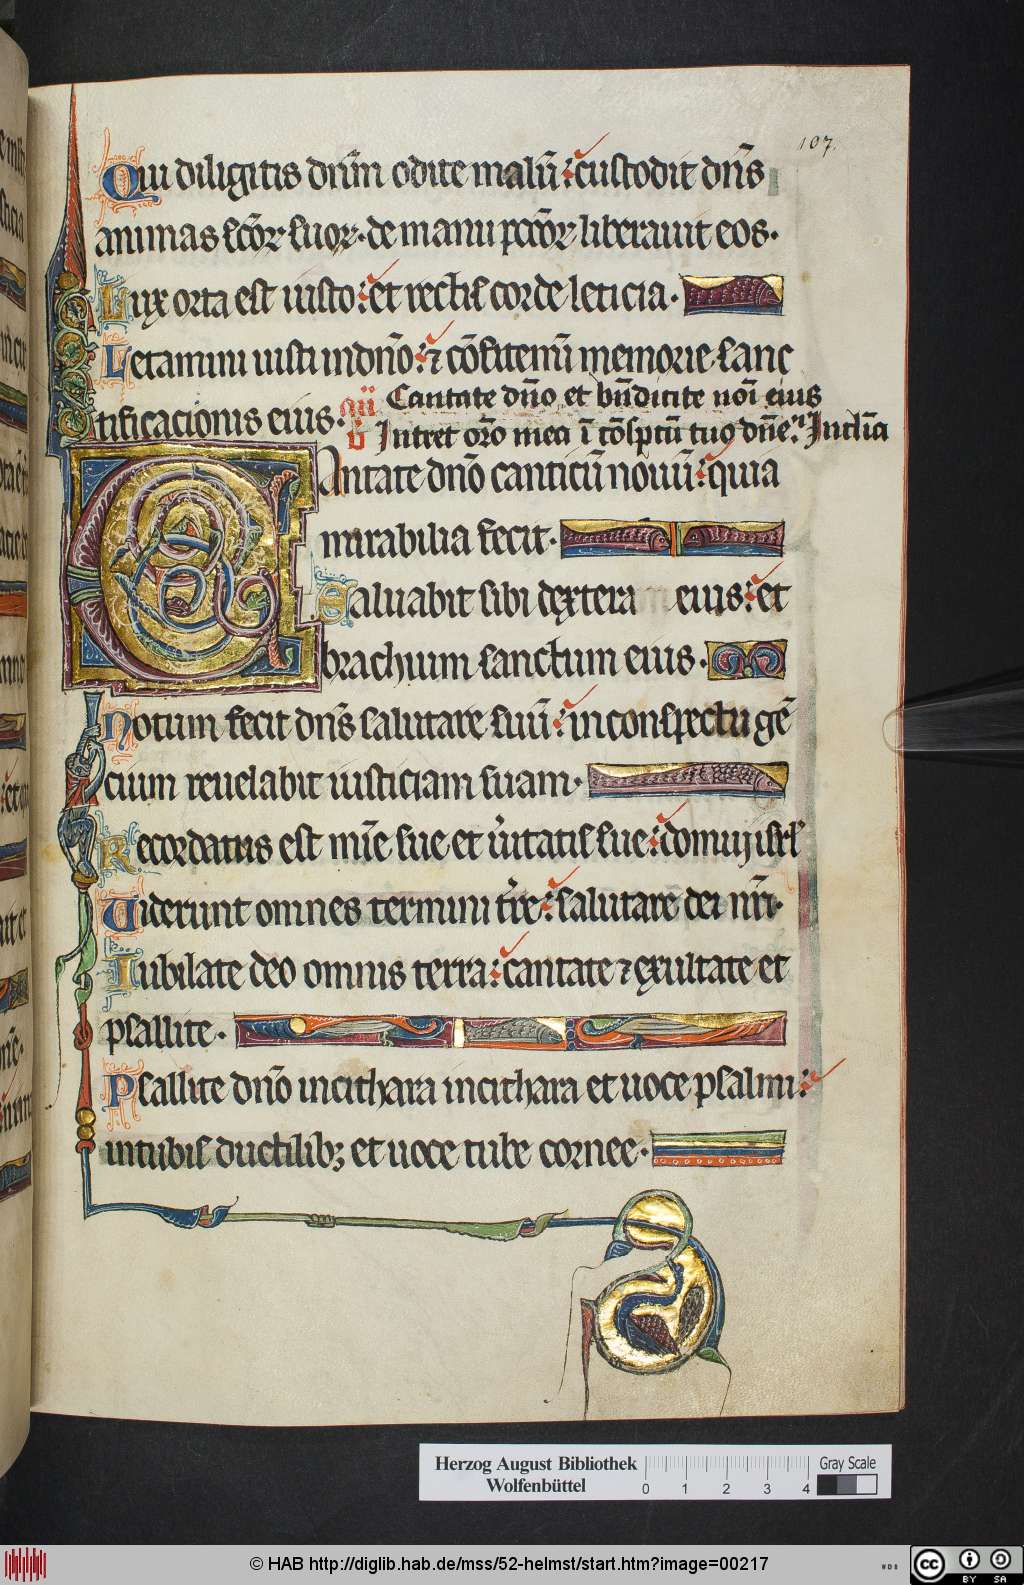 107.
Qui diligitis dnm̄ odite malū: custodit dn̄s
animas sc̄oꝝ suoꝝ· de manu pcc̄oꝝ liberauit eos·
Lux orta est iusto: et rectis corde leticia·
Letamini iusti in dn̄o: ⁊ cōfitemī memorie sanc
tificacionis eius· an̄ Cantate dn̄o et bn̄dicite noī eius
v̄ Intret or̄o mea ī cōsp̄tū tuo dn̄e. Inclīa
Cantate dn̄o canticū nouū: quia
mirabilia fecit·
Saluabit sibi dextera eius: et
brachium sanctum eius·
Notum fecit dn̄s salutare suū: in conspectu gē
cium reuelabit iusticiam suam·
Recordatus est mīe sue et ūitatis sue: domui isrl̄
Uiderunt omnes termini tr̄re: salutare dei nr̄i·
Iubilate deo omnis terra: cantate ⁊ exultate et
psallite·
Psallite dn̄o in cithara in cithara et uoce psalmi:
in tubis ductilibꝫ et uoce tube cornee·
Herzog August Bibliothek
Wolfenbüttel
0 1 2 3 4
Gray Scale
© HAB http://diglib.hab.de/mss/52-helmst/start.htm?image=00217
WDB
cc BY SA